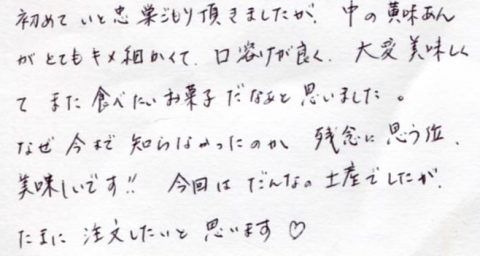 初めて いと忠 巣ごもり頂きましたが、中の黄味あん
がとてもキメ細かくて、口溶けが良く、大変美味しく
て また食べたいお菓子だなあと思いました。
なぜ今まで知らなかったのか、残念に思う位、
美味しいです!! 今回はだんなの土産でしたが、
たまに注文したいと思います♡